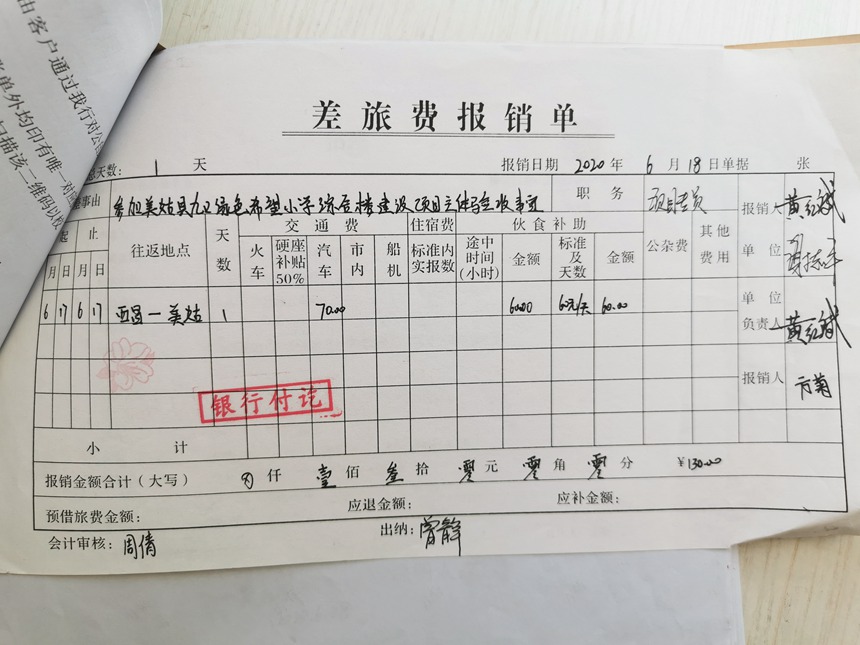 由客户通过我行对公
单外均印有唯一对应
扫描该二维码以
差旅费报销单
天数: 1 天 报销日期 2020 年 6 月 18 日 单据 张
事由 参加美姑县九口绿色希望小学综合楼建设项目主体验收事宜 职务 项目专员 报销人 黄红斌
起止 往返地点 天数 交通费 住宿费 伙食补助 公杂费 其他费用 单位
月 日 月 日 火车 硬座补贴50% 汽车 市内 船机 标准内实报数 途中时间(小时) 金额 标准及天数 金额
6 17 6 17 西昌—美姑 1 70.00 60.00 60元/天 60.00 单位负责人 黄红斌
银行付讫 报销人 方菊
小计
报销金额合计(大写) ⊗ 仟 壹 佰 叁 拾 零 元 零 角 零 分 ¥130.00
预借旅费金额: 应退金额: 应补金额:
会计审核: 周倩 出纳: 曾静